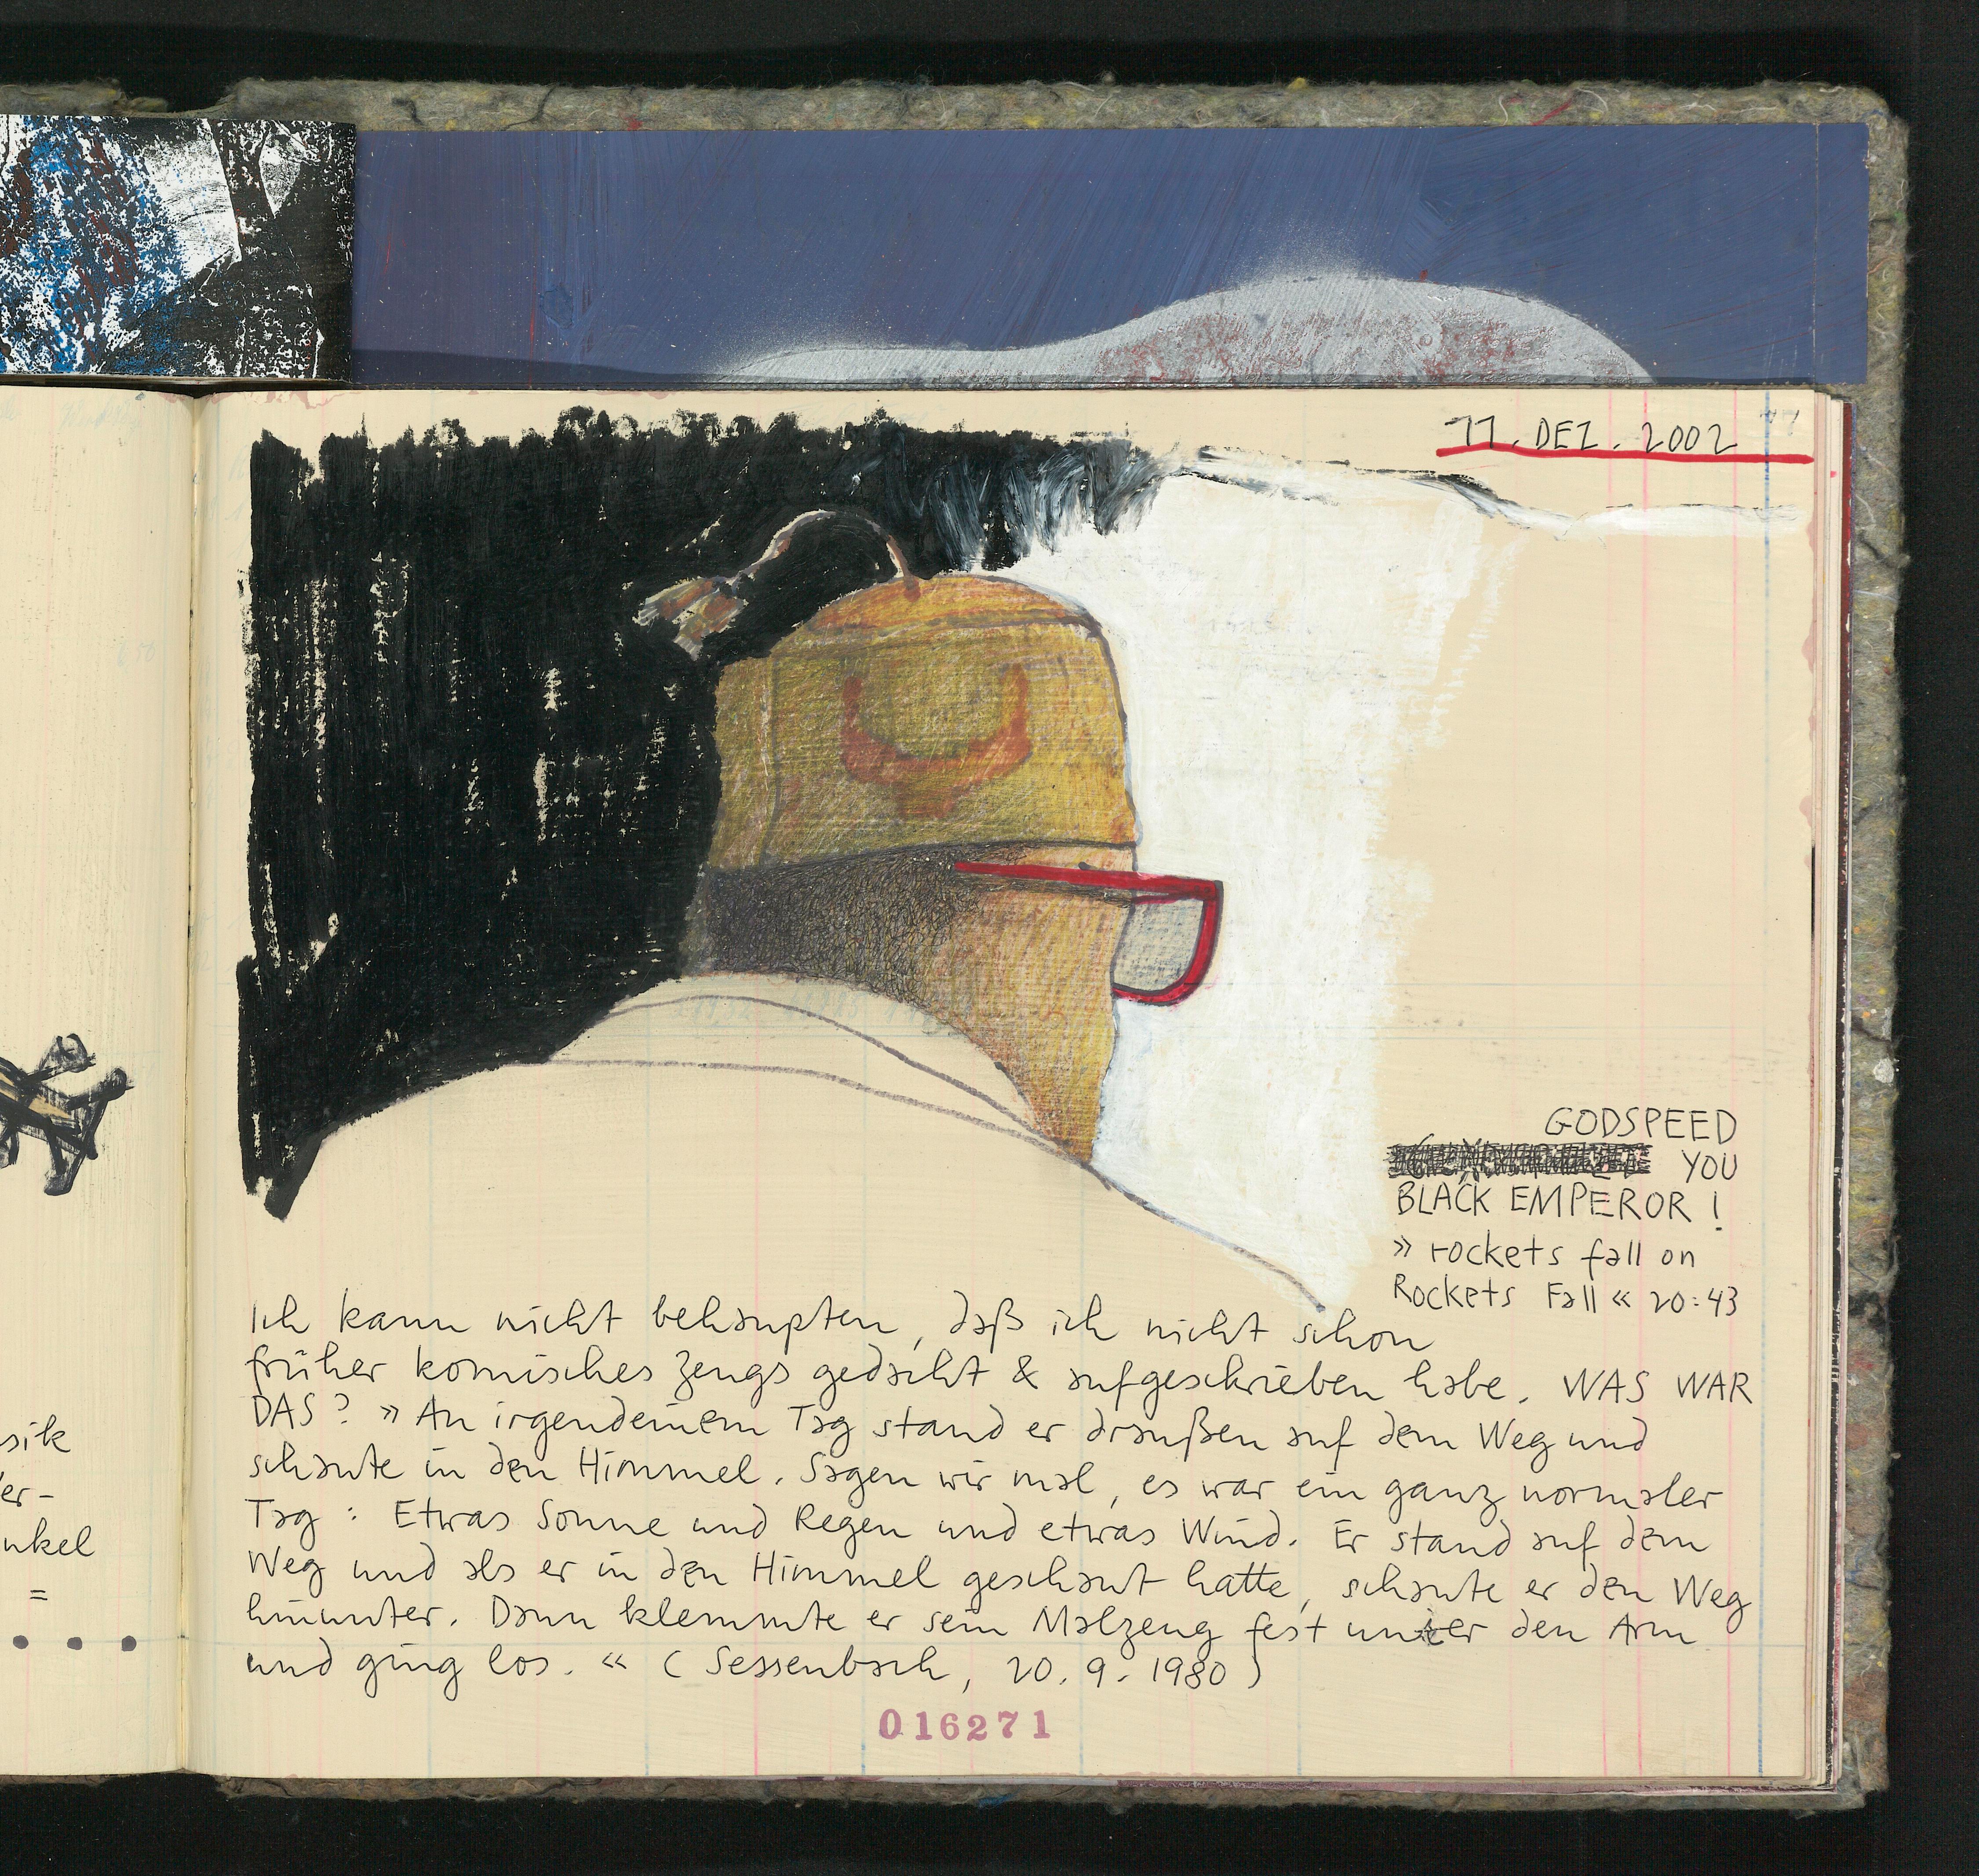 11. DEZ. 2002
GODSPEED
YOU
BLACK EMPEROR !
» rockets fall on
Rockets Fall « 20:43
Ich kann nicht behaupten, daß ich nicht schon
früher komisches Zeugs gedacht & aufgeschrieben habe. WAS WAR
DAS? » An irgendeinem Tag stand er draußen auf dem Weg und
schaute in den Himmel. Sagen wir mal, es war ein ganz normaler
Tag : Etwas Sonne und Regen und etwas Wind. Er stand auf dem
Weg und als er in den Himmel geschaut hatte, schaute er den Weg
hinunter. Dann klemmte er sein Malzeug fest unter den Arm
und ging los. « ( Sessenbach, 20. 9. 1980 )
016271
sik
er-
nkel
=